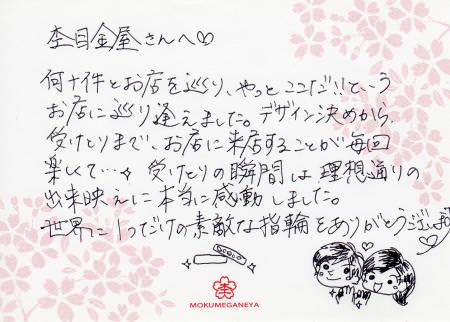 杢目金屋さんへ♡
何十件とお店を巡り、やっとココだ!!という
お店に巡り逢えました。デザイン決めから、
受けとりまで、お店に来店することが毎回
楽しくて…✧ 受けとりの瞬間は理想通りの
出来映えに本当に感動しました。
世界に1つだけの素敵な指輪をありがとうございます
杢
MOKUMEGANEYA